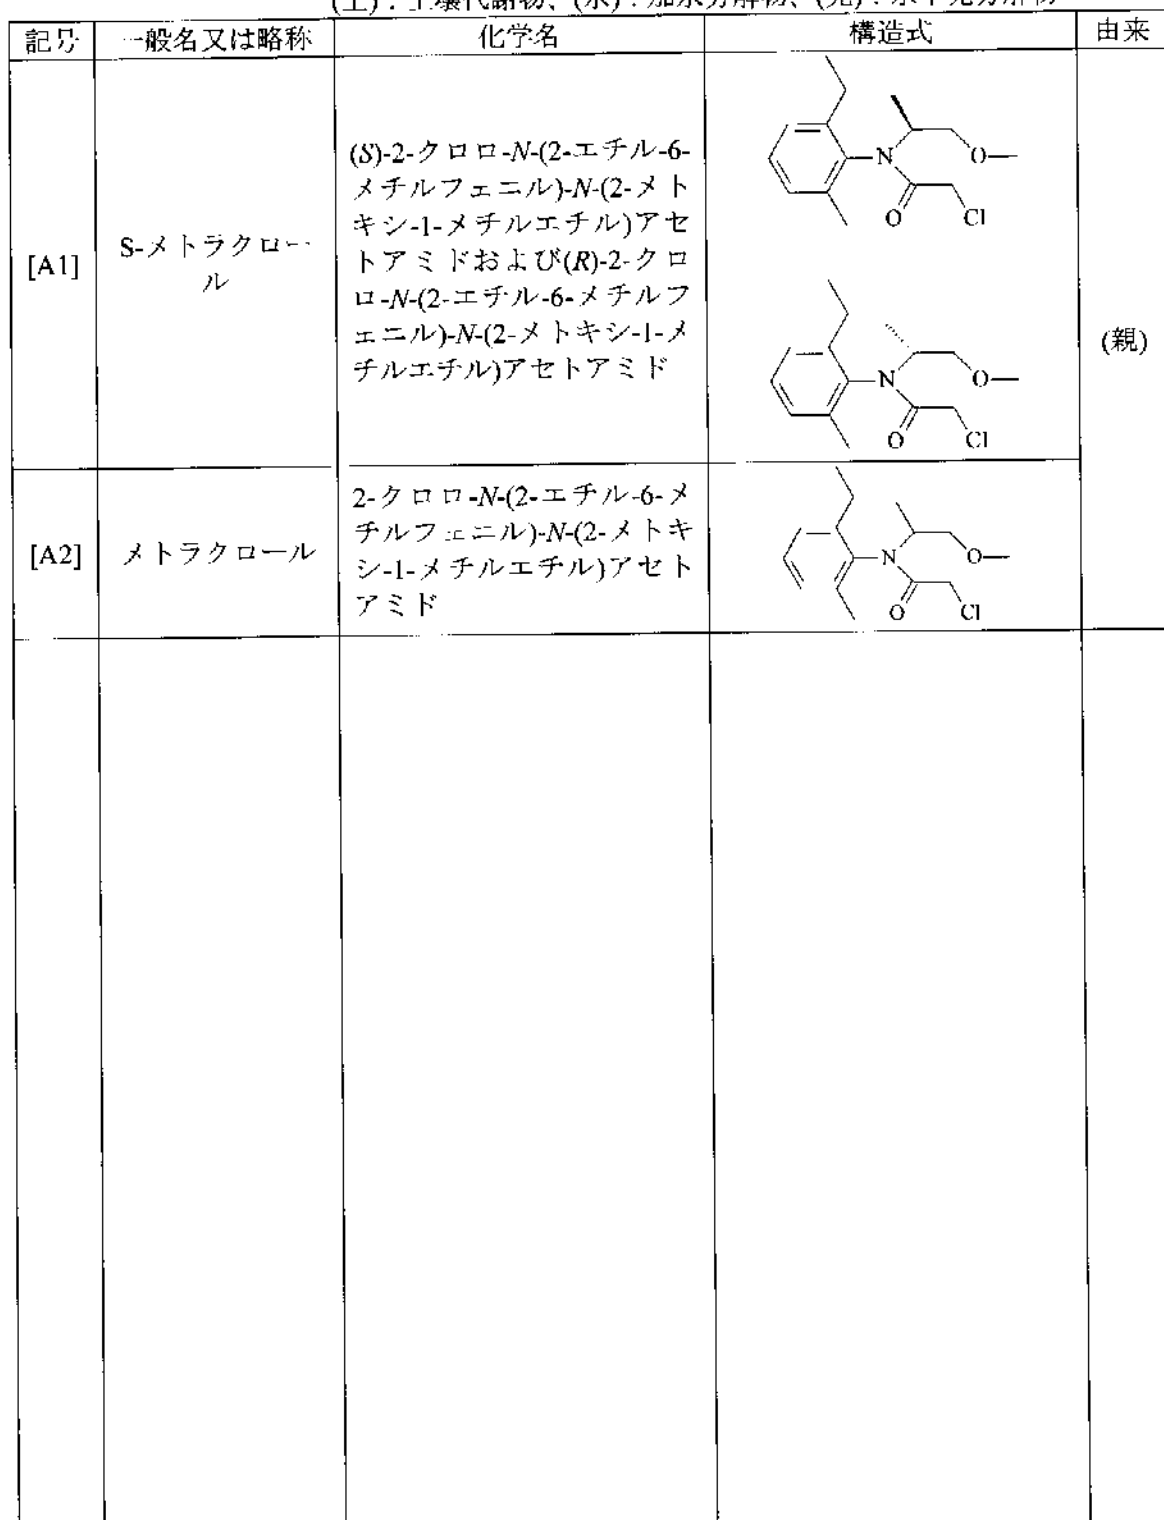 (土)：土壌代謝物、(水)：加水分解物、(光)：水中光分解物
記号 一般名又は略称 化学名 構造式 由来
[A1]
S-メトラクロー
ル
(S)-2-クロロ-N-(2-エチル-6-
メチルフェニル)-N-(2-メト
キシ-1-メチルエチル)アセ
トアミドおよび(R)-2-クロ
ロ-N-(2-エチル-6-メチルフ
ェニル)-N-(2-メトキシ-1-メ
チルエチル)アセトアミド
N
O
O
Cl
N
O
O
Cl
(親)
[A2]
メトラクロール
2-クロロ-N-(2-エチル-6-メ
チルフェニル)-N-(2-メトキ
シ-1-メチルエチル)アセト
アミド
N
O
O
Cl